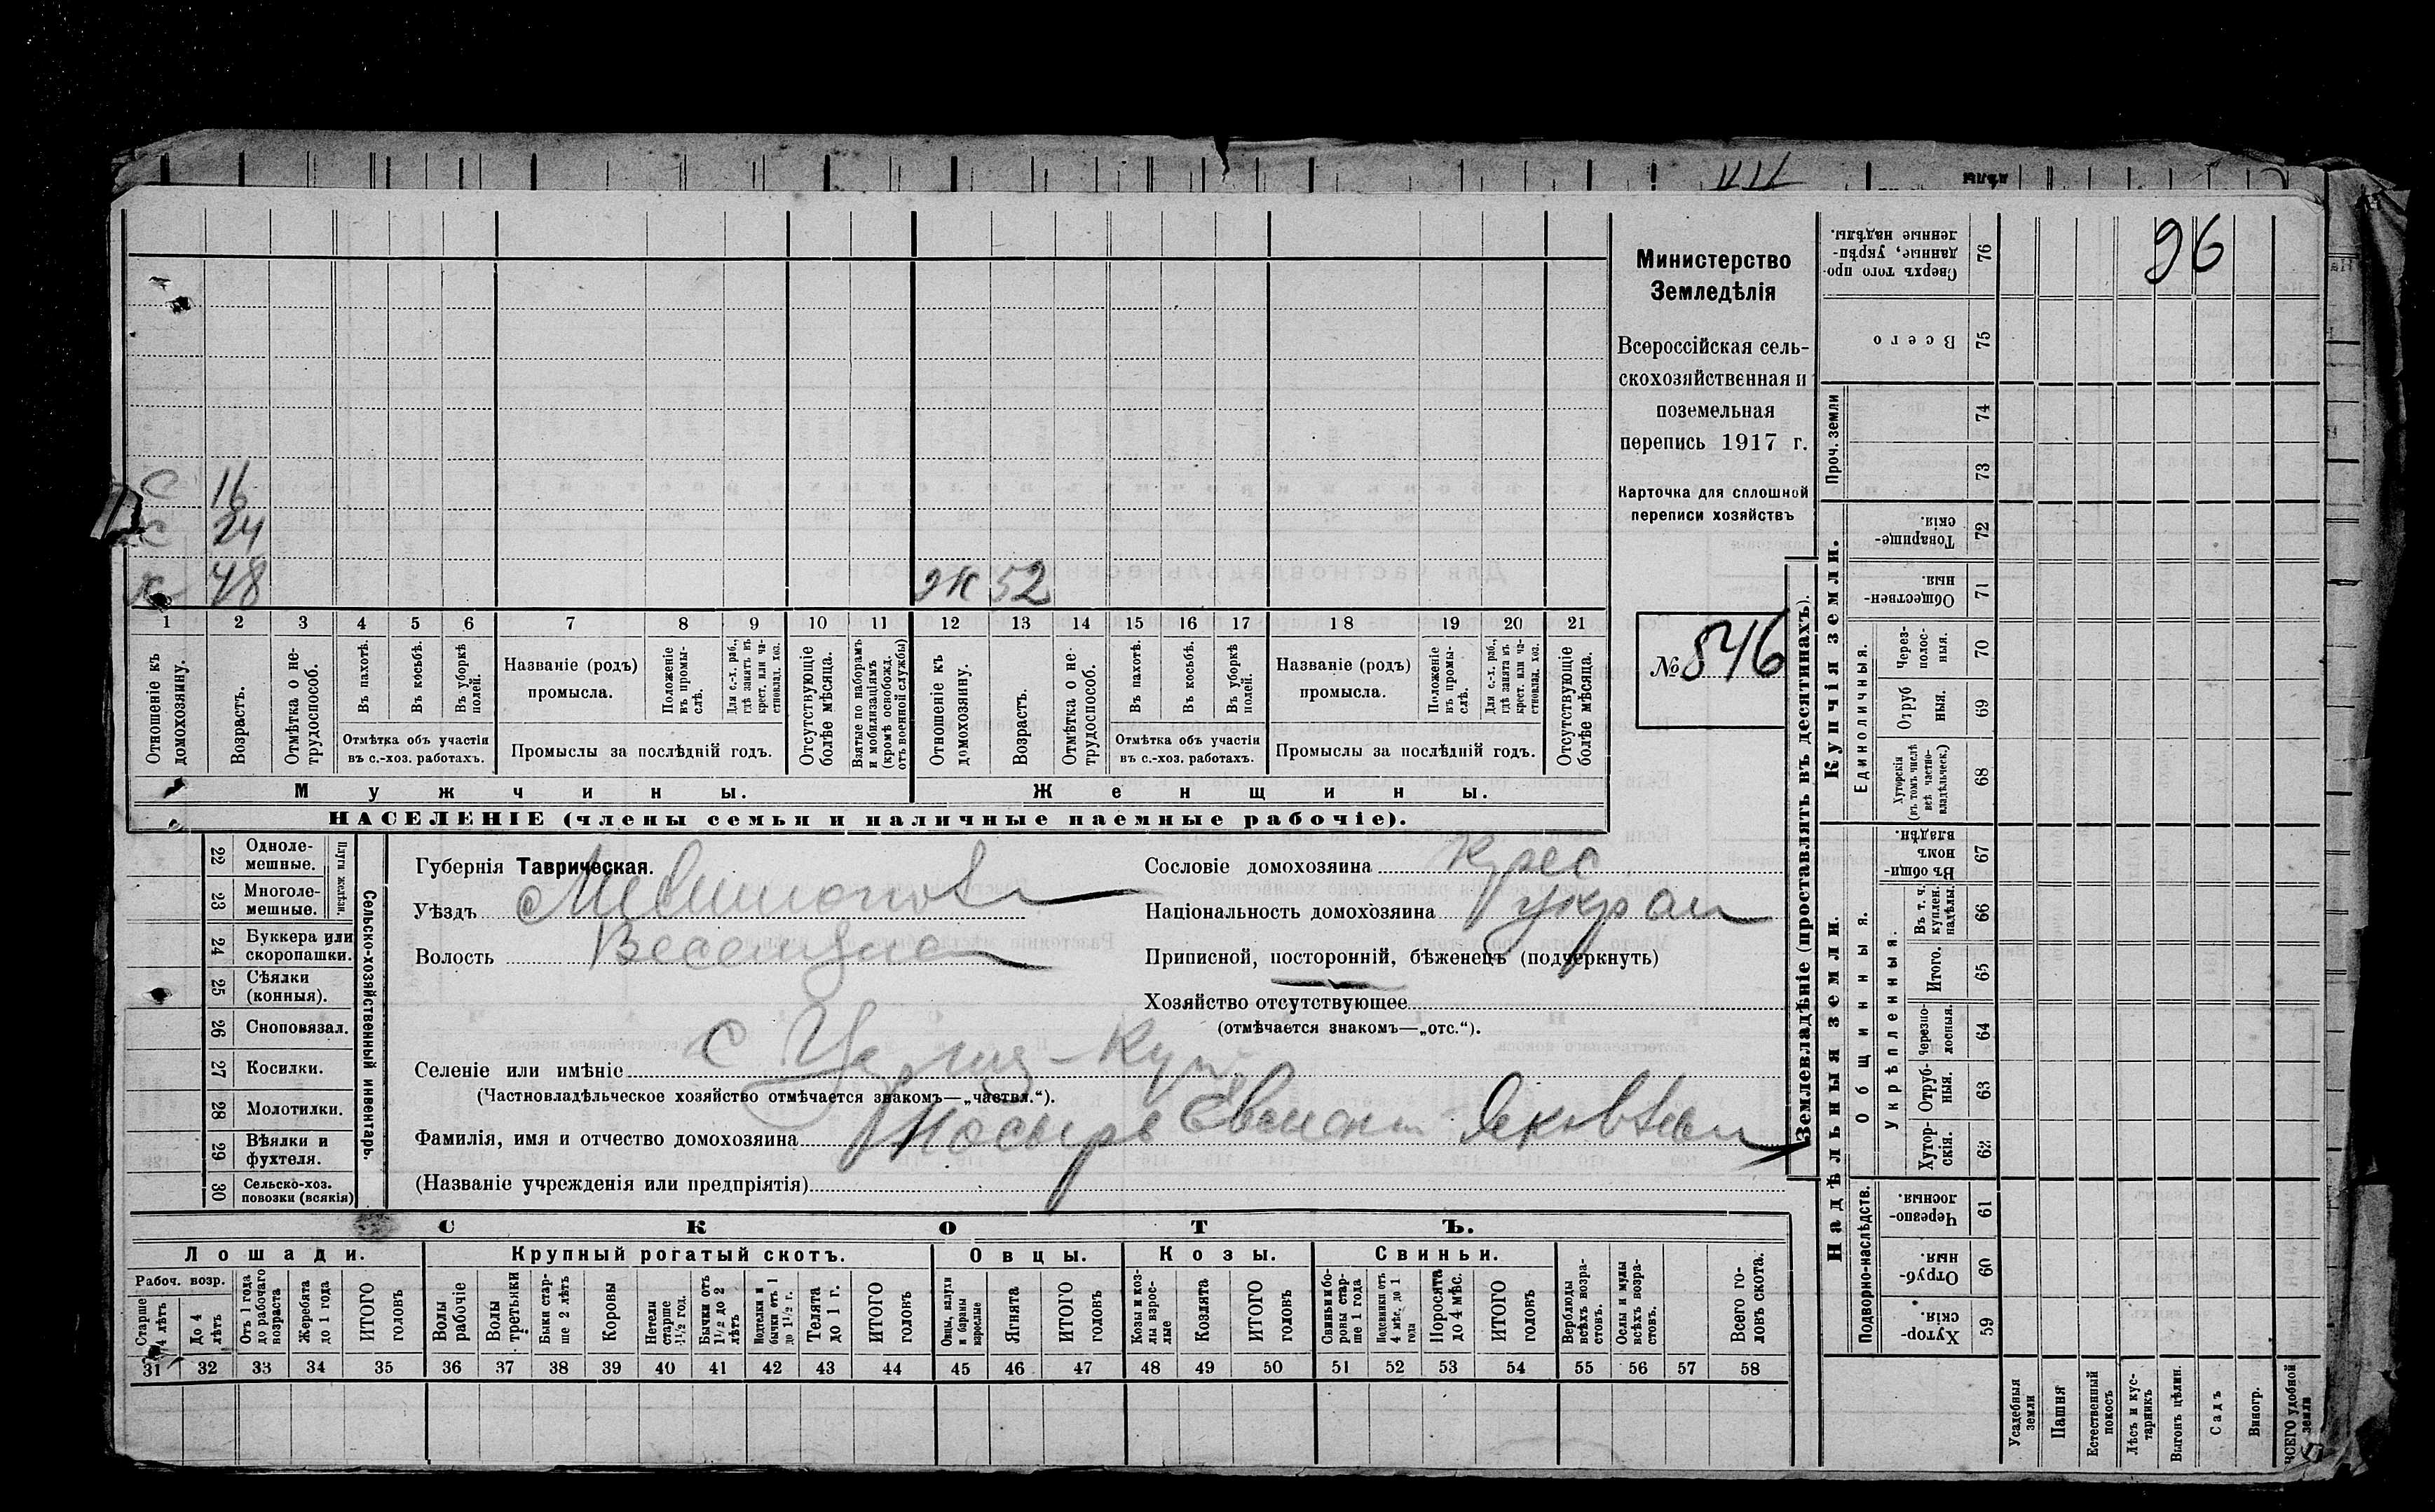 96
Министерство
Земледѣлія
Всероссійская сель-
скохозяйственная и
поземельная
перепись 1917 г.
Карточка для сплошной
переписи хозяйствъ
№ 846
с 16
с 24
х 48
ж 52
1 2 3 4 5 6 7 8 9 10 11 12 13 14 15 16 17 18 19 20 21
Отношеніе къ домохозяину.
Возрастъ.
Отмѣтка о не-трудоспособ.
Въ пахотѣ.
Въ косьбѣ.
Въ уборкѣ полей.
Отмѣтка объ участіи въ с.-хоз. работахъ.
Названіе (родъ) промысла.
Положеніе въ промы-слѣ.
Для с.-х. раб., гдѣ занятъ въ крест. или ча-стновлад. хоз.
Промыслы за послѣдній годъ.
Отсутствующіе болѣе мѣсяца.
Взятые по наборамъ и мобилизаціямъ (кромѣ освобожд. отъ военной службы)
Отношеніе къ домохозяину.
Возрастъ.
Отмѣтка о не-трудоспособ.
Въ пахотѣ.
Въ косьбѣ.
Въ уборкѣ полей.
Отмѣтка объ участіи въ с.-хоз. работахъ.
Названіе (родъ) промысла.
Положеніе въ промы-слѣ.
Для с.-х. раб., гдѣ занята въ крест. или ча-стновлад. хоз.
Промыслы за послѣдній годъ.
Отсутствующіе болѣе мѣсяца.
Мужчины.
Женщины.
НАСЕЛЕНІЕ (члены семьи и наличные наемные рабочіе).
Сельско-хозяйственный инвентарь.
Плуги желѣзн.
22 Одноле-мешные.
23 Многоле-мешные.
24 Буккера или скоропашки.
25 Сѣялки (конныя).
26 Сноповязал.
27 Косилки.
28 Молотилки.
29 Вѣялки и фухтеля.
30 Сельско-хоз. повозки (всякія)
Губернія Таврическая.
Уѣздъ
Волость
Селеніе или имѣніе с
(Частновладѣльческое хозяйство отмѣчается знакомъ—„частвл.“).
Фамилія, имя и отчество домохозяина Носырь
(Названіе учрежденія или предпріятія)
Сословіе домохозяина Крес
Національность домохозяина украи
Приписной, посторонній, бѣженецъ (подчеркнуть)
Хозяйство отсутствующее
(отмѣчается знакомъ—„отс.“).
СКОТЪ.
Лошади.
Крупный рогатый скотъ.
Овцы.
Козы.
Свиньи.
Рабоч. возр.
Старше 4 лѣтъ
До 4 лѣтъ
Отъ 1 года до рабочаго возраста
Жеребята до 1 года
ИТОГО головъ
Волы рабочіе
Волы третьяки
Быки стар-ше 2 лѣтъ
Коровы
Нетели старше 1½ год.
Бычки отъ 1½ до 2 лѣтъ
Подтелки и бычки отъ 1 до 1½ г.
Телята до 1 г.
ИТОГО головъ
Овцы, валухи и бараны взрослые
Ягнята
ИТОГО головъ
Козы и коз-лы взрос-лые
Козлята
ИТОГО головъ
Свиньи и бо-ровы стар-ше 1 года
Подсвинки отъ 4 мѣс. до 1 года
Поросята до 4 мѣс.
ИТОГО головъ
Верблюды всѣхъ возра-стовъ.
Ослы и мулы всѣхъ возра-стовъ.
Всего го-ловъ скота.
31 32 33 34 35 36 37 38 39 40 41 42 43 44 45 46 47 48 49 50 51 52 53 54 55 56 57 58
Землевладѣніе (проставлять въ десятинахъ).
Надѣльныя земли.
Купчія земли.
Проч. земли
Подворно-наслѣдств.
Общинныя.
Укрѣпленныя.
Единоличныя.
Сверхъ того про-данные, укрѣп-ленные надѣлы. 76
Всего 75
74
73
Товарище-скія. 72
Обществен-ныя. 71
Через-полос-ныя. 70
Отруб ныя. 69
Хуторскія (въ томъ числѣ всѣ частно-владѣльческ.) 68
Въ общи-номъ владѣн. 67
Въ т. ч. куплен. надѣлы. 66
Итого. 65
Черезпо-лосныя. 64
Отруб-ныя. 63
Хутор-скія. 62
Черезпо-лосныя. 61
Отруб-ныя. 60
Хутор-скія. 59
Усадебныя земли
Пашня
Естественный покосъ
Лѣсъ и кус-тарникъ
Выгонъ цѣлин.
Садъ
Виногр.
ВСЕГО удобной земли